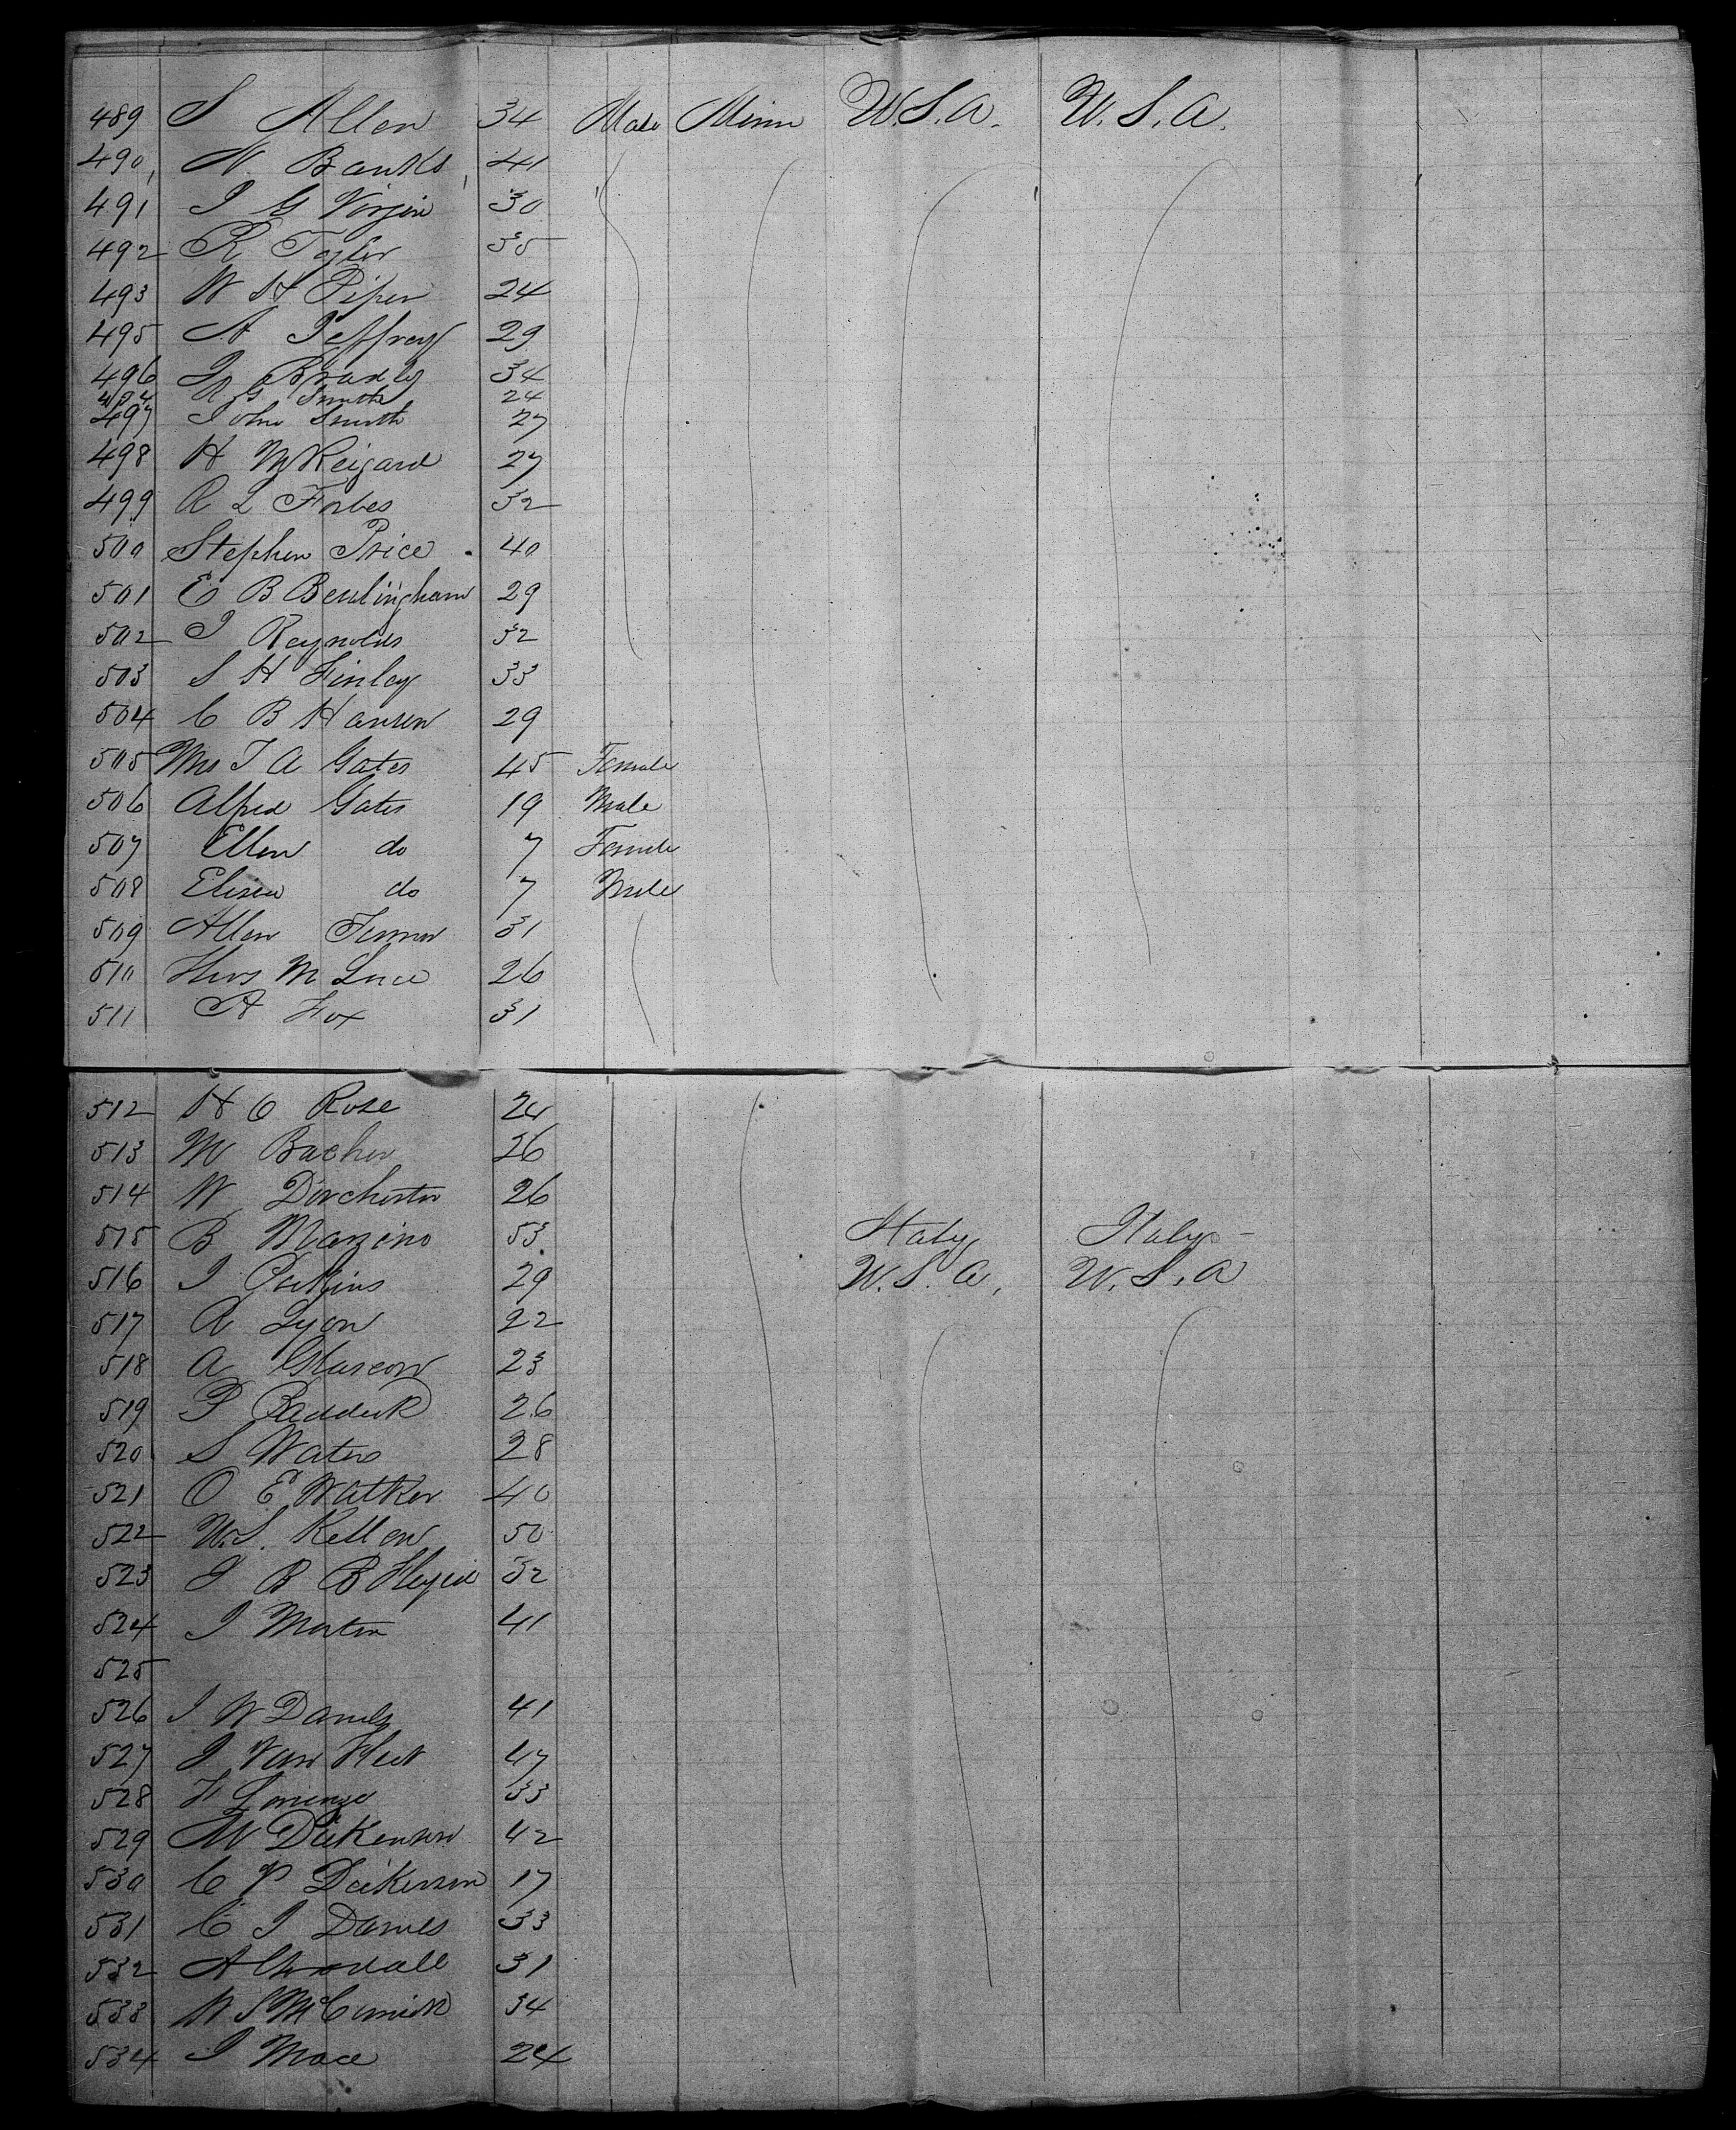 489 S Allen 34 Male Minn U.S.A. U.S.A.
490 N. Banks 41
491 J G Virgin 30
492 R Tayler 35
493 W H Piper 24
495 A Jeffrey 29
496 J Bradly 34
494 N G Smith 24
497 John Smith 27
498 H McKeigard 27
499 R L Forbes 32
500 Stephen Price 40
501 E B Berlingham 29
502 J Reynolds 32
503 S H Finley 33
504 C B Hansen 29
505 Mrs T A Gates 45 Female
506 Alfred Gates 19 Male
507 Ellen do 7 Female
508 do 7 Male
509 Allen 31
510 M Luce 26
511 A Fox 31
512 H C Rose 24
513 M Bacher 26
514 W Dorchester 26
515 B Manzino 53 Italy Italy
516 J Perkins 29 U.S.A. U.S.A
517 R Lyon 22
518 A 23
519 P Padduck 26
520 S Waters 28
521 O E Walker 40
522 W.S. Kellow 50
523 J B B 32
524 J Martin 41
525
526 J W Daniels 41
527 J Van 47
528 F Lorenzo 33
529 W Dickenson 42
530 C P Dickenson 17
531 C J Daniels 33
532 A 31
533 W S McCormick 34
534 J Mace 24